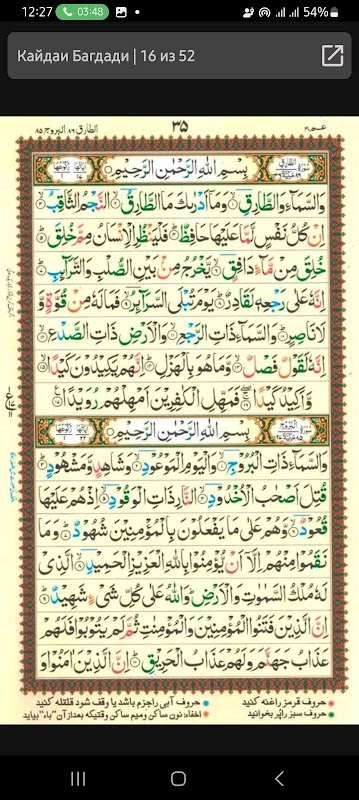 12:27
03:48
54%
Кайдаи Багдади | 16 из 52
الطارق ٨٦ البروج ٨٥
٣٥
عم ٣٠
بِسْمِ اللهِ الرَّحْمٰنِ الرَّحِيْمِ
وَالسَّمَآءِ وَالطَّارِقِ ۙ وَمَآ اَدْرٰىكَ مَا الطَّارِقُ ۙ النَّجْمُ الثَّاقِبُ ۙ
اِنْ كُلُّ نَفْسٍ لَّمَّا عَلَيْهَا حَافِظٌ ؕ فَلْيَنْظُرِ الْاِنْسَانُ مِمَّ خُلِقَ ؕ
خُلِقَ مِنْ مَّآءٍ دَافِقٍ ۙ يَّخْرُجُ مِنْۢ بَيْنِ الصُّلْبِ وَالتَّرَآئِبِ ؕ
اِنَّهٗ عَلٰى رَجْعِهٖ لَقَادِرٌ ؕ يَوْمَ تُبْلَى السَّرَآئِرُ ۙ فَمَا لَهٗ مِنْ قُوَّةٍ وَّ
لَا نَاصِرٍ ؕ وَالسَّمَآءِ ذَاتِ الرَّجْعِ ۙ وَالْاَرْضِ ذَاتِ الصَّدْعِ ۙ
اِنَّهٗ لَقَوْلٌ فَصْلٌ ۙ وَّمَا هُوَ بِالْهَزْلِ ؕ اِنَّهُمْ يَكِيْدُوْنَ كَيْدًا ۙ
وَّاَكِيْدُ كَيْدًا ۚ فَمَهِّلِ الْكٰفِرِيْنَ اَمْهِلْهُمْ رُوَيْدًا
بِسْمِ اللهِ الرَّحْمٰنِ الرَّحِيْمِ
وَالسَّمَآءِ ذَاتِ الْبُرُوْجِ ۙ وَالْيَوْمِ الْمَوْعُوْدِ ۙ وَشَاهِدٍ وَّمَشْهُوْدٍ ؕ
قُتِلَ اَصْحٰبُ الْاُخْدُوْدِ ۙ النَّارِ ذَاتِ الْوَقُوْدِ ۙ اِذْ هُمْ عَلَيْهَا
قُعُوْدٌ ۙ وَّهُمْ عَلٰى مَا يَفْعَلُوْنَ بِالْمُؤْمِنِيْنَ شُهُوْدٌ ؕ وَمَا
نَقَمُوْا مِنْهُمْ اِلَّآ اَنْ يُّؤْمِنُوْا بِاللهِ الْعَزِيْزِ الْحَمِيْدِ ۙ الَّذِيْ
لَهٗ مُلْكُ السَّمٰوٰتِ وَالْاَرْضِ ؕ وَاللهُ عَلٰى كُلِّ شَيْءٍ شَهِيْدٌ ؕ
اِنَّ الَّذِيْنَ فَتَنُوا الْمُؤْمِنِيْنَ وَالْمُؤْمِنٰتِ ثُمَّ لَمْ يَتُوْبُوْا فَلَهُمْ
عَذَابُ جَهَنَّمَ وَلَهُمْ عَذَابُ الْحَرِيْقِ ؕ اِنَّ الَّذِيْنَ اٰمَنُوْا وَ
حروف قرمز راغنه کنید
حروف آبی راجزم باشد یا وقف شود قلقله کنید
حروف سبز راپر بخوانید
اخفاء نون ساکن ومیم ساکن وقتیکه بعدازآن "باء" بیاید